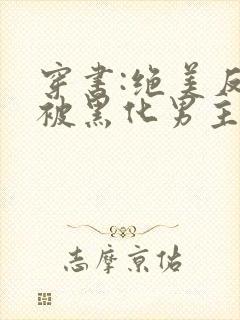 穿书:绝美反
被黑化男主
志摩京佑